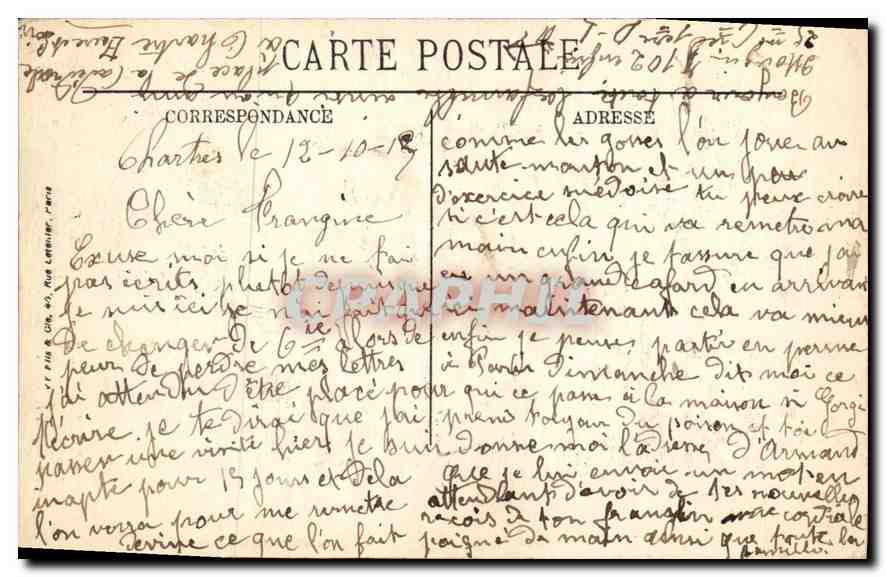 CARTE POSTALE
CORRESPONDANCE
ADRESSE
Chartres le 12-10-1
Chère Frangine
Excuse moi si je ne fai
pas écrits plutôt depuis que
je suis ici je n'ai fait que
de changer de Cie alors de
peur de perdre mes lettres
j'ai attendu d'être placé pour
t'écrire je te dirai que j'ai
passer une visite hier je suis
inapte pour 15 jours et de la
l'on verra pour me remetre
devine ce que l'on fait
comme les gosses l'on joue au
saute-mouton et un peu
d'exercice médoise tu peux croire
si c'est cela qui va remetre ma
main enfin je t'assure que j'ai
eu un grand cafard en arrivan
ici maintenant cela va mieux
enfin je penses partir en perme
à Paris Dimanche dit moi ce
qui ce passe à la maison si Gorgi
prens toujour du poison et toi
donne moi l'adresse d'Armand
que je lui envoi un mot en
attendant d'avoir de tes nouvelles
recois de ton frangin une cordiale
poigné de main ainsi que toute la
famille
Bonjour à toute la famille ainsi qu'au amis
102 enfrie
place de la Cathédrale
à Chartre Eure et Loir
VT Fils & Cie, 45, Rue Letellier, Paris
CPAPHIL